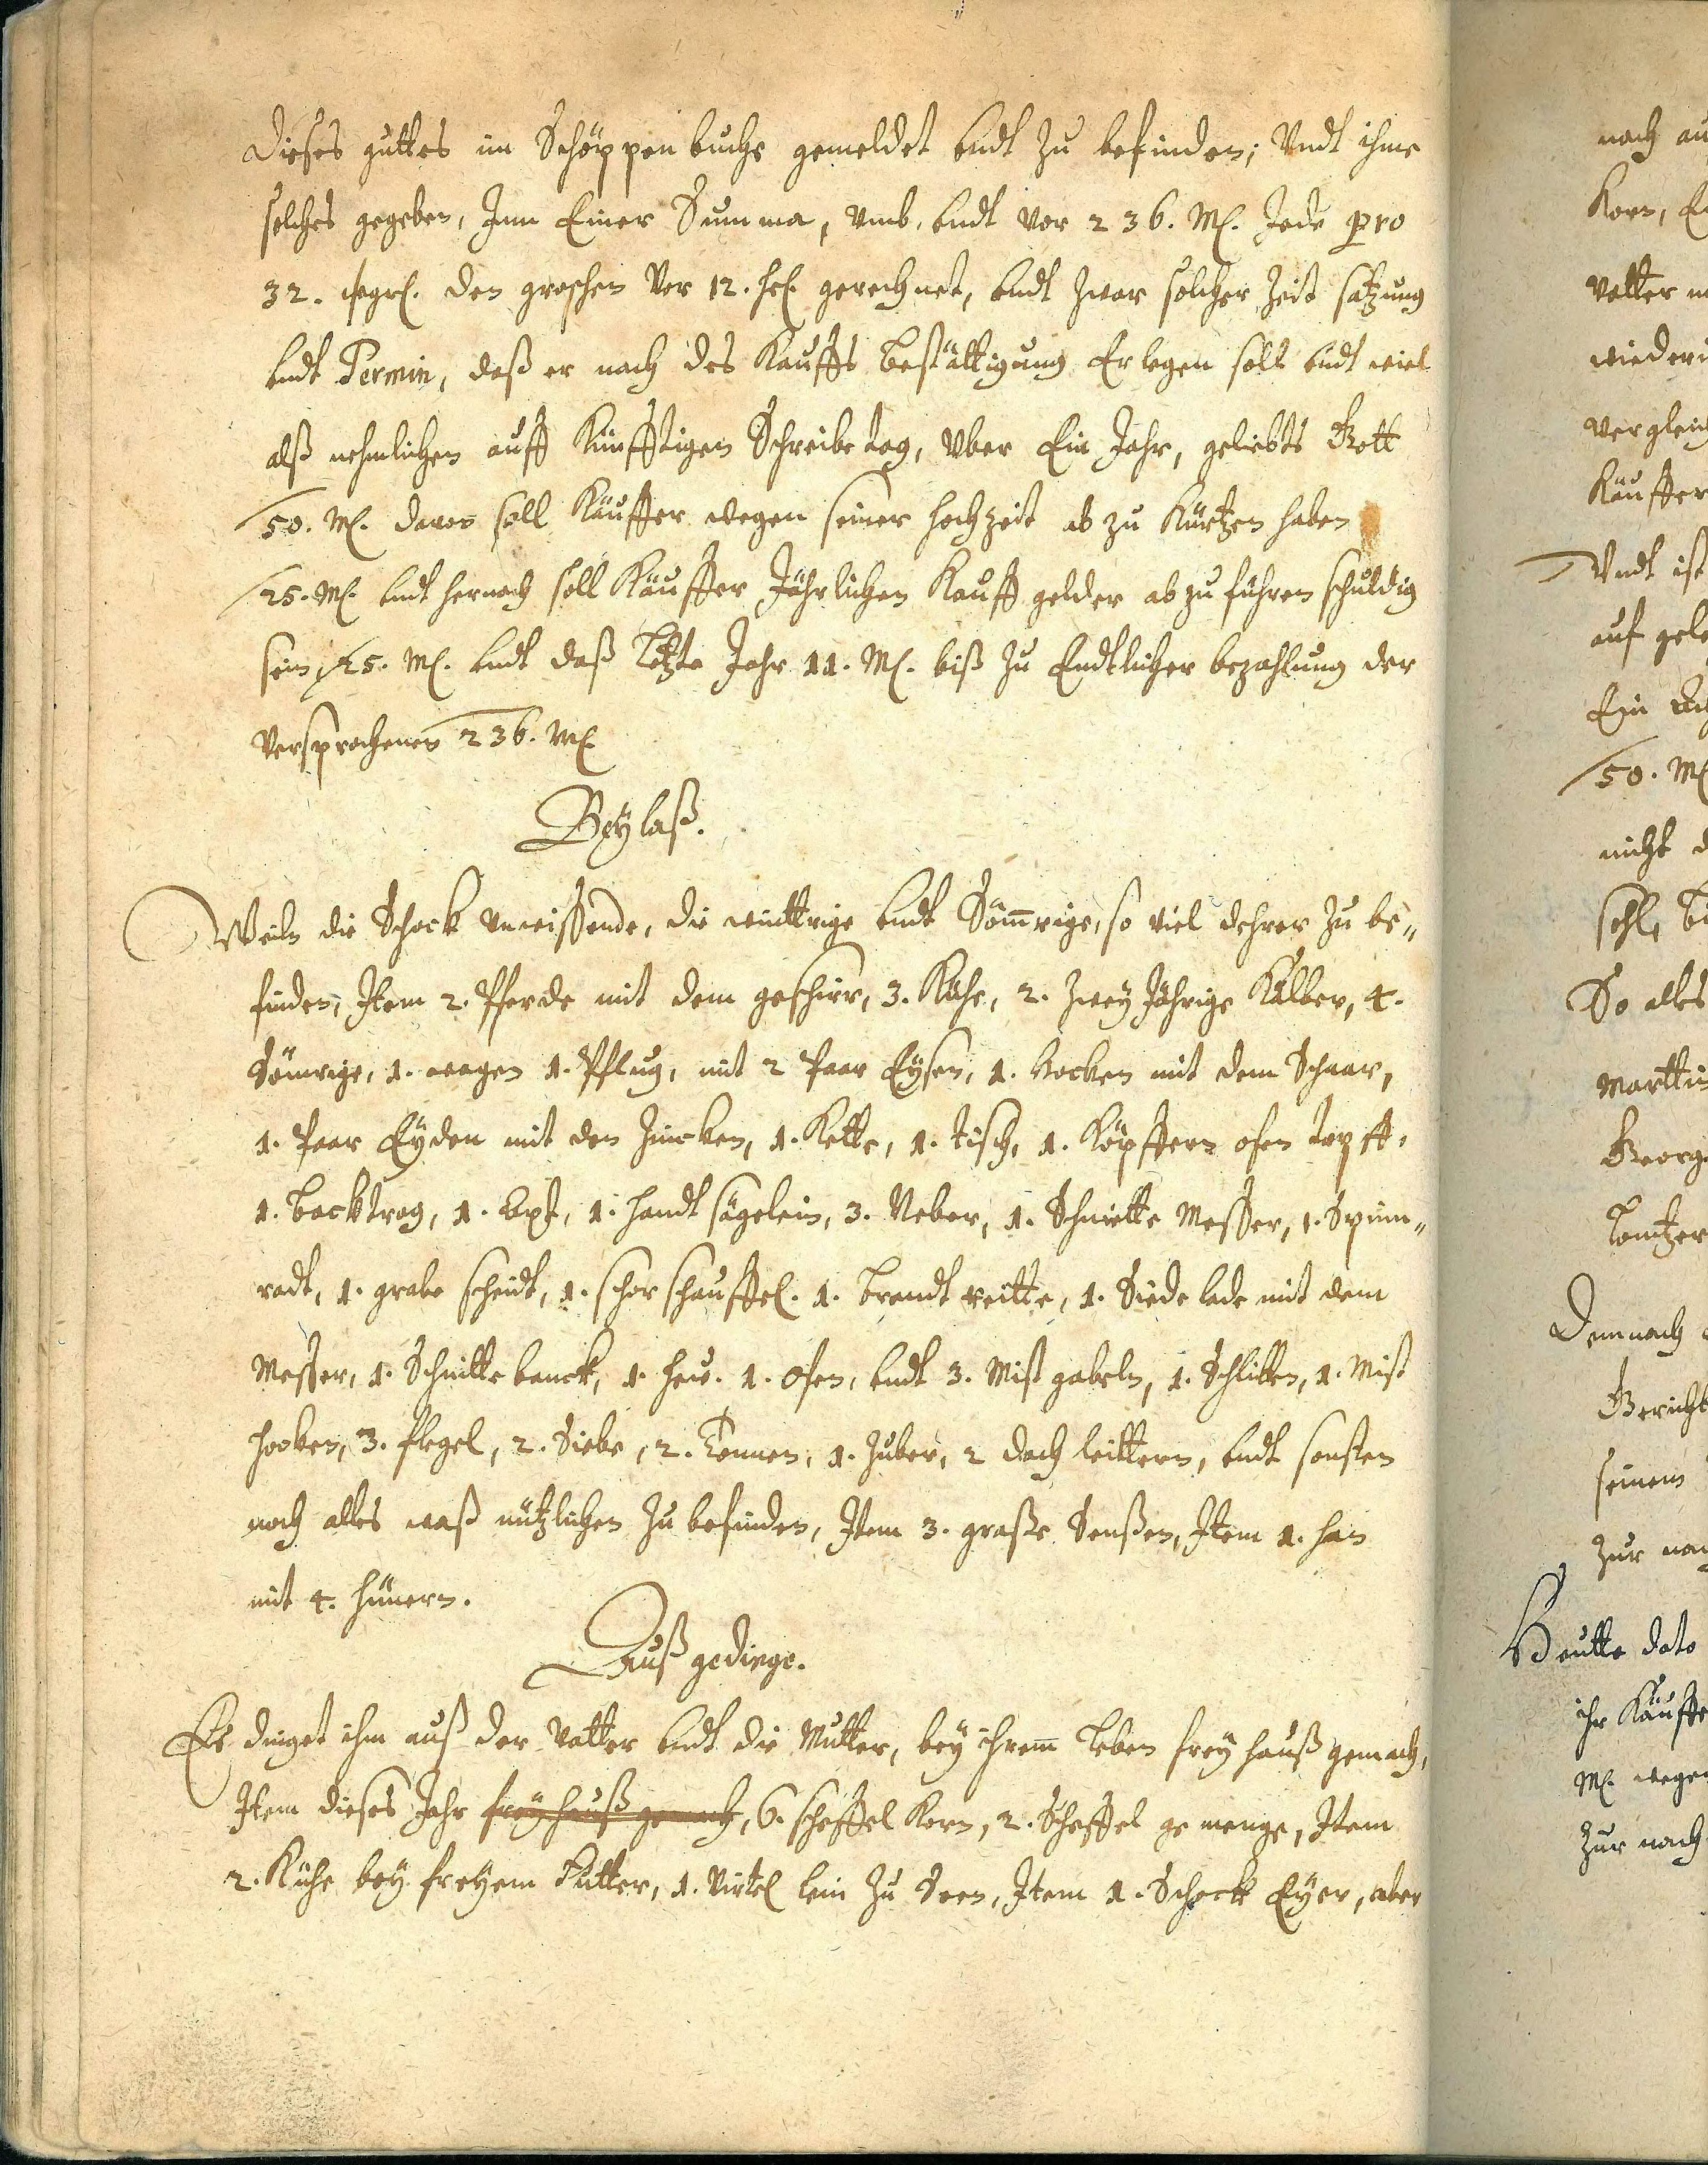 dieses guttes im Schöppenbuche gemeldet undt zu befinden; Undt ihme
solches gegeben, Inn Einer Summa, umb, undt vor 236. M. Jede pro
32. sgr. den groschen Vor 12. hl. gerechnet, undt zwar solcher Zeit satzung
undt Termin, daß er nach des Kauffs bestättigung Erlegen soll undt wiel
alß nehmlichen auff Künfftigen Schreibetag, Uber Ein Jahr, geliebts Gott
50. M. davon soll Käuffer wegen seiner hochzeit ab zu Kürtzen haben
25. M. undt hernach soll Käuffer Jährlichen Kauff gelder abzuführen schuldig
sein, 25. M. undt daß Letzte Jahr 11. M. biß zu Endtlicher bezahlung der
Versprochenen 236. M.
Beylaß.
Weiln die Schock, die winttrige undt Sömrige, so viel dehrer zu be„
finden, Item 2. Pferde mit dem geschirr, 3. Kühe, 2. Zwey Jährige Kälber, 4.
Sömrige, 1. wagen 1. Pflug, mit 2 Paar Eysen, 1. Hocken mit dem Schaar,
1. Paar Eyden mit den Zincken, 1. Kette, 1. tisch, 1. Köpffern ofen topff,
1. backtrog, 1. Axt, 1. handt sägelein, 3. Neber, 1. Schnitte Messer, 1. Spinn„
radt, 1. grabe scheidt, 1. schor schauffel. 1. brandt reitte, 1. Siede lade mit dem
Messer, 1. Schnitte banck, 1. heu. 1. ofen, undt 3. Mist gabeln, 1. Schlitten, 1. Mist
hocken, 3. flegel, 2. Siebe, 2. Tonnen, 1. Zuber, 2 dach leittern, undt sonsten
noch alles waß nützlichen zu befinden, Item 3. grosse Senßen, Item 1. han
mit 4. hünern.
Auß gedinge.
Es dinget ihm auß der Vatter undt die Mutter, bey ihrem Leben frey hauß gemach,
Item dieses Jahr frey hauß gemach, 6. scheffel Korn, 2. Scheffel gemenge, Item
2. Kühe bey freyem Futter, 1. Virtel lein zu Seen, Item 1. Schock Eyer, aber
nach
Korn,
Vatter
Käuffer
Undt ist
auf
Ein
50. M
nicht
So alles
Georg
Demnach
Gericht
seinem
zur
Heutte dato
ihr Käuffe
M. wegen
zur nach